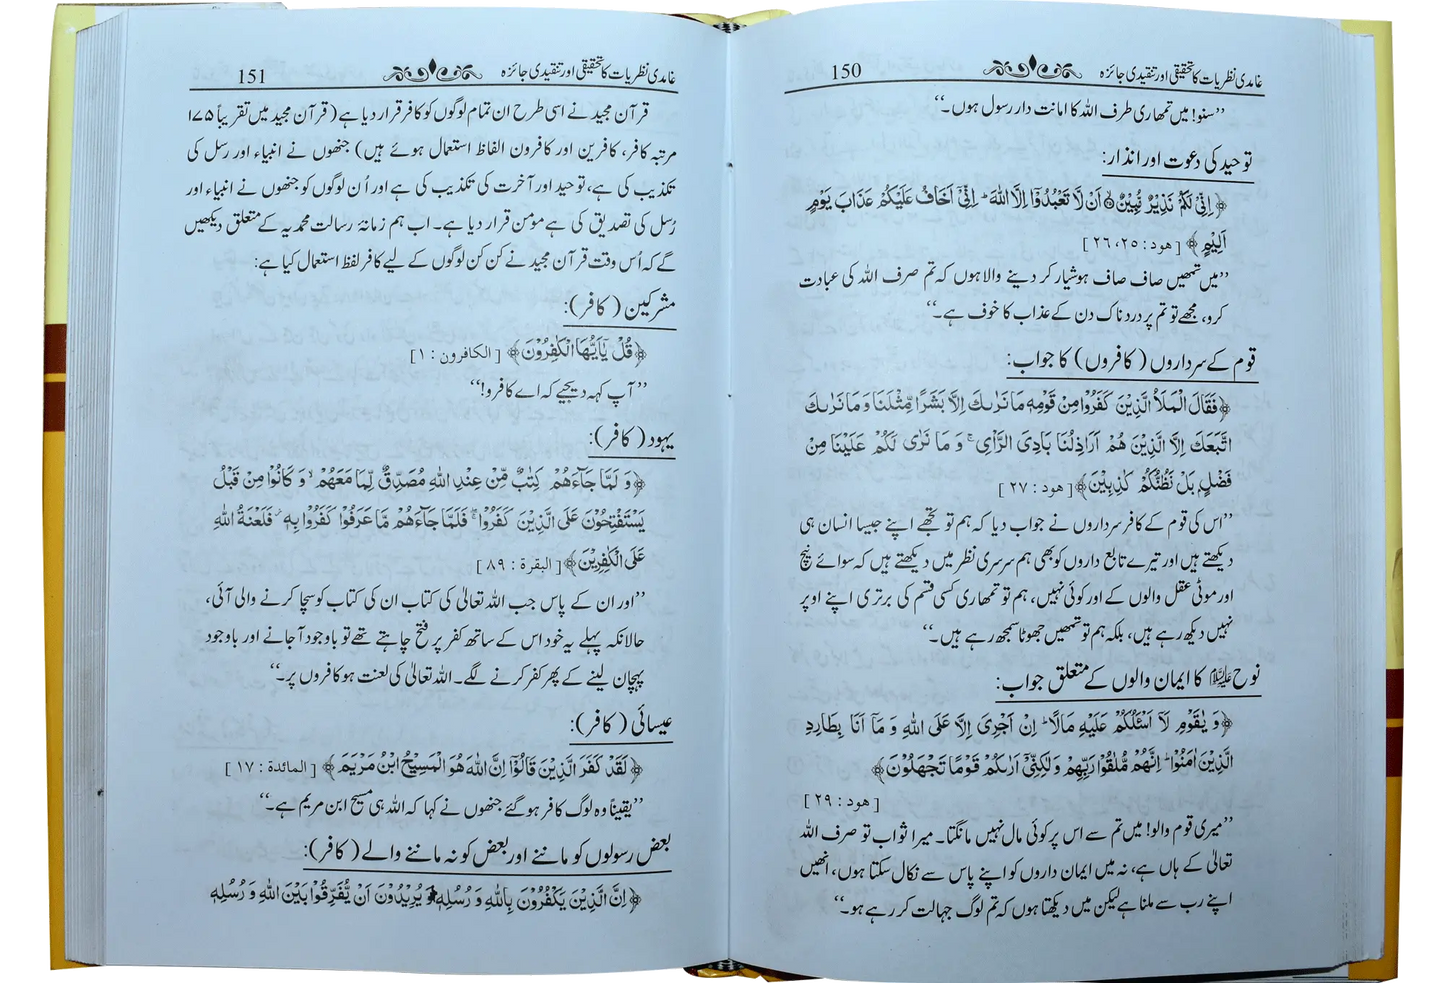 غامدی نظریات کا تحقیقی اور تنقیدی جائزہ 150
’’سنو! میں تمھاری طرف اللہ کا امانت دار رسول ہوں۔‘‘
توحید کی دعوت اور انذار:
﴿اِنِّیْ لَکُمْ نَذِیْرٌ مُّبِیْنٌ۝ اَنْ لَّا تَعْبُدُوْٓا اِلَّا اللہَ ؕ اِنِّیْٓ اَخَافُ عَلَیْکُمْ عَذَابَ یَوْمٍ
اَلِیْمٍ﴾ [ھود: ۲۵، ۲۶]
’’میں تمھیں صاف صاف ہوشیار کر دینے والا ہوں کہ تم صرف اللہ کی عبادت
کرو، مجھے تو تم پر دردناک دن کے عذاب کا خوف ہے۔‘‘
قوم کے سرداروں (کافروں) کا جواب:
﴿فَقَالَ الْمَلَاُ الَّذِیْنَ کَفَرُوْا مِنْ قَوْمِہٖ مَا نَرٰىکَ اِلَّا بَشَرًا مِّثْلَنَا وَ مَا نَرٰىکَ
اتَّبَعَکَ اِلَّا الَّذِیْنَ ھُمْ اَرَاذِلُنَا بَادِیَ الرَّاْیِ ۚ وَ مَا نَرٰی لَکُمْ عَلَیْنَا مِنْ
فَضْلٍۭ بَلْ نَظُنُّکُمْ کٰذِبِیْنَ﴾ [ھود: ۲۷]
’’اس کی قوم کے کافر سرداروں نے جواب دیا کہ ہم تو تجھے اپنے جیسا انسان ہی
دیکھتے ہیں اور تیرے تابع داروں کو بھی ہم سرسری نظر میں دیکھتے ہیں کہ سوائے نیچ
اور موٹی عقل والوں کے اور کوئی نہیں، ہم تو تمھاری کسی قسم کی برتری اپنے اوپر
نہیں دیکھ رہے ہیں، بلکہ ہم تو تمھیں جھوٹا سمجھ رہے ہیں۔‘‘
نوح علیہ السلام کا ایمان والوں کے متعلق جواب:
﴿وَ یٰقَوْمِ لَآ اَسْئَلُکُمْ عَلَیْہِ مَالًا ؕ اِنْ اَجْرِیَ اِلَّا عَلَی اللہِ وَ مَآ اَنَا بِطَارِدِ
الَّذِیْنَ اٰمَنُوْا ؕ اِنَّھُمْ مُّلٰقُوْا رَبِّھِمْ وَ لٰکِنِّیْٓ اَرٰىکُمْ قَوْمًا تَجْھَلُوْنَ﴾
[ھود: ۲۹]
’’میری قوم والو! میں تم سے اس پر کوئی مال نہیں مانگتا۔ میرا ثواب تو صرف اللہ
تعالیٰ کے ہاں ہے، نہ میں ایمان داروں کو اپنے پاس سے نکال سکتا ہوں، انھیں
اپنے رب سے ملنا ہے لیکن میں دیکھتا ہوں کہ تم لوگ جہالت کر رہے ہو۔‘‘
غامدی نظریات کا تحقیقی اور تنقیدی جائزہ 151
قرآن مجید نے اسی طرح ان تمام لوگوں کو کافر قرار دیا ہے (قرآن مجید میں تقریباً ۱۷۵
مرتبہ کافر، کافرین اور کافرون الفاظ استعمال ہوئے ہیں) جنھوں نے انبیاء اور رسل کی
تکذیب کی ہے، توحید اور آخرت کی تکذیب کی ہے اور اُن لوگوں کو جنھوں نے انبیاء اور
رُسل کی تصدیق کی ہے مومن قرار دیا ہے۔ اب ہم زمانۂ رسالت محمدیہ کے متعلق دیکھیں
گے کہ اُس وقت قرآن مجید نے کن کن لوگوں کے لیے کافر لفظ استعمال کیا ہے:
مشرکین (کافر):
﴿قُلْ یٰٓاَیُّھَا الْکٰفِرُوْنَ﴾ [الکافرون: ۱]
’’آپ کہہ دیجیے کہ اے کافرو!‘‘
یہود (کافر):
﴿وَ لَمَّا جَآءَھُمْ کِتٰبٌ مِّنْ عِنْدِ اللہِ مُصَدِّقٌ لِّمَا مَعَھُمْ ۙ وَ کَانُوْا مِنْ قَبْلُ
یَسْتَفْتِحُوْنَ عَلَی الَّذِیْنَ کَفَرُوْا ۚ فَلَمَّا جَآءَھُمْ مَّا عَرَفُوْا کَفَرُوْا بِہٖ ۫ فَلَعْنَۃُ اللہِ
عَلَی الْکٰفِرِیْنَ﴾ [البقرۃ: ۸۹]
’’اور ان کے پاس جب اللہ تعالیٰ کی کتاب ان کی کتاب کو سچا کرنے والی آئی،
حالانکہ پہلے یہ خود اس کے ساتھ کفر پر فتح چاہتے تھے تو باوجود آ جانے اور باوجود
پہچان لینے کے پھر کفر کرنے لگے۔ اللہ تعالیٰ کی لعنت ہو کافروں پر۔‘‘
عیسائی (کافر):
﴿لَقَدْ کَفَرَ الَّذِیْنَ قَالُوْٓا اِنَّ اللہَ ھُوَ الْمَسِیْحُ ابْنُ مَرْیَمَ﴾ [المائدۃ: ۱۷]
’’یقیناً وہ لوگ کافر ہو گئے جنھوں نے کہا کہ اللہ ہی مسیح ابن مریم ہے۔‘‘
بعض رسولوں کو ماننے اور بعض کو نہ ماننے والے (کافر):
﴿اِنَّ الَّذِیْنَ یَکْفُرُوْنَ بِاللہِ وَ رُسُلِہٖ وَ یُرِیْدُوْنَ اَنْ یُّفَرِّقُوْا بَیْنَ اللہِ وَ رُسُلِہٖ